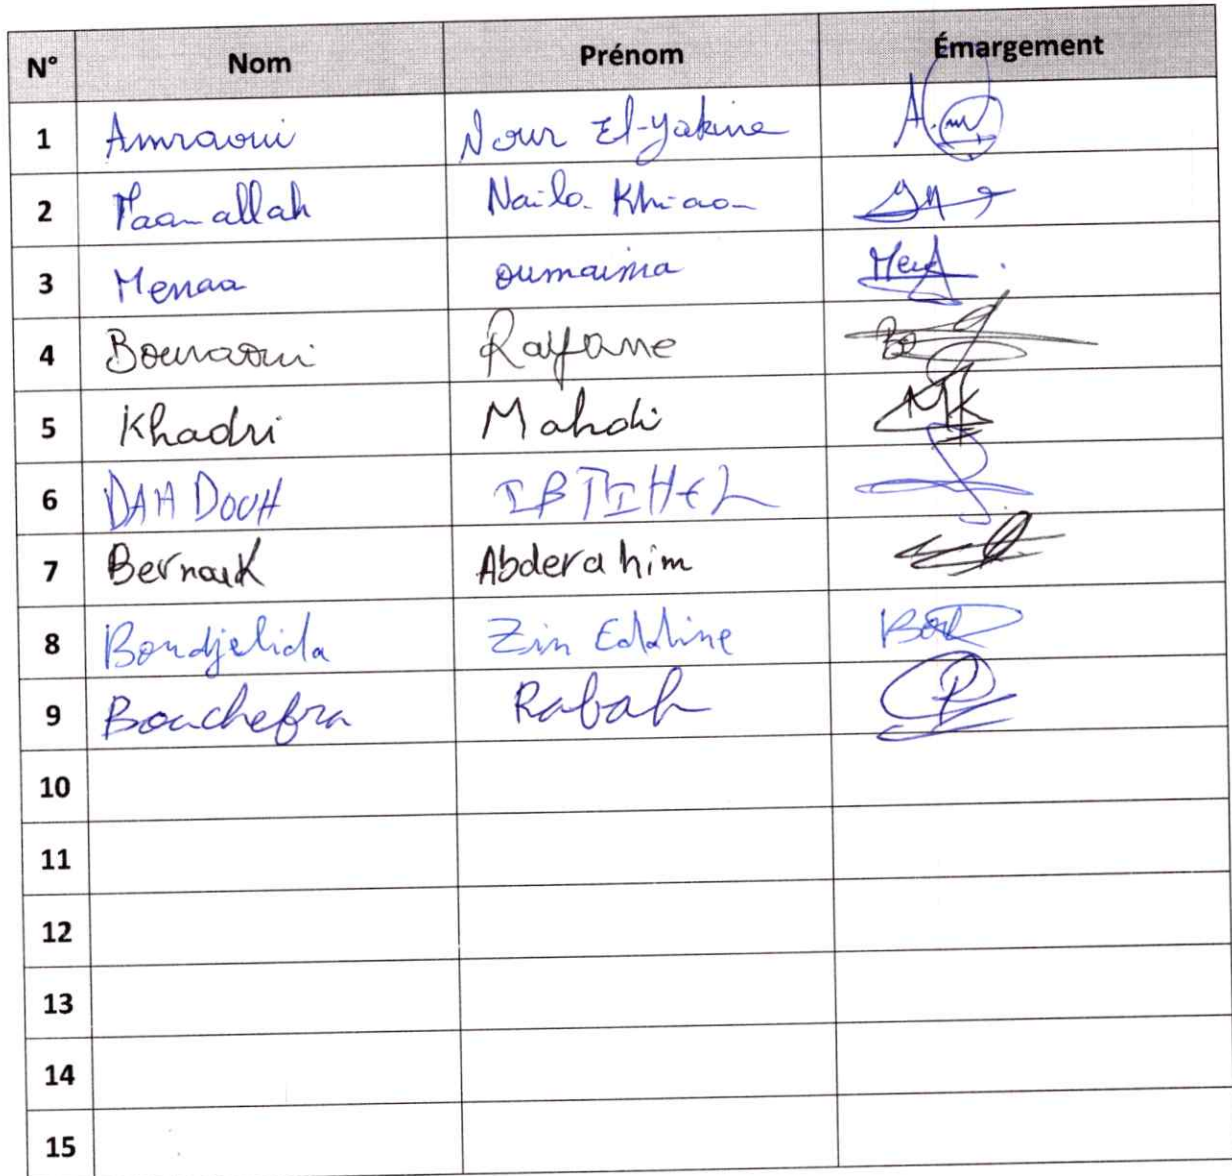 N° Nom Prénom Émargement
1 Amraoui Nour El-yakine A.
2 Maamallah Naila
3 Menaa oumaima
4 Bouraoui Rayane
5 Khadri Mahdi MK
6 DAHDOUH IBTIHEL
7 Bernauk Abderahim
8 Boudjelida Zin Eddine
9 Bouchefra Rabah
10
11
12
13
14
15